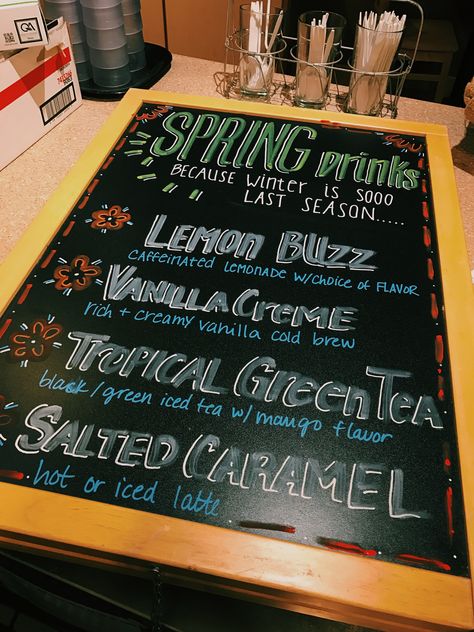 SPRING Drinks
BECAUSE WINTER IS SOOO
LAST SEASON.....
LEMON BUZZ
CAFFEINATED LEMONADE W/CHOICE OF FLAVOR
VANILLA CREME
rich + creamy vanilla cold brew
TROPICAL GREEN TEA
black/green iced tea w/ mango flavor
SALTED CARAMEL
hot or iced latte